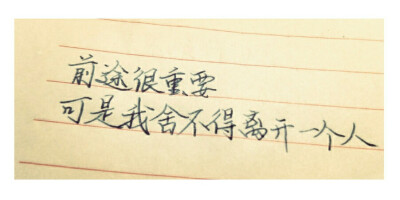 前途很重要
可是我舍不得离开一个人